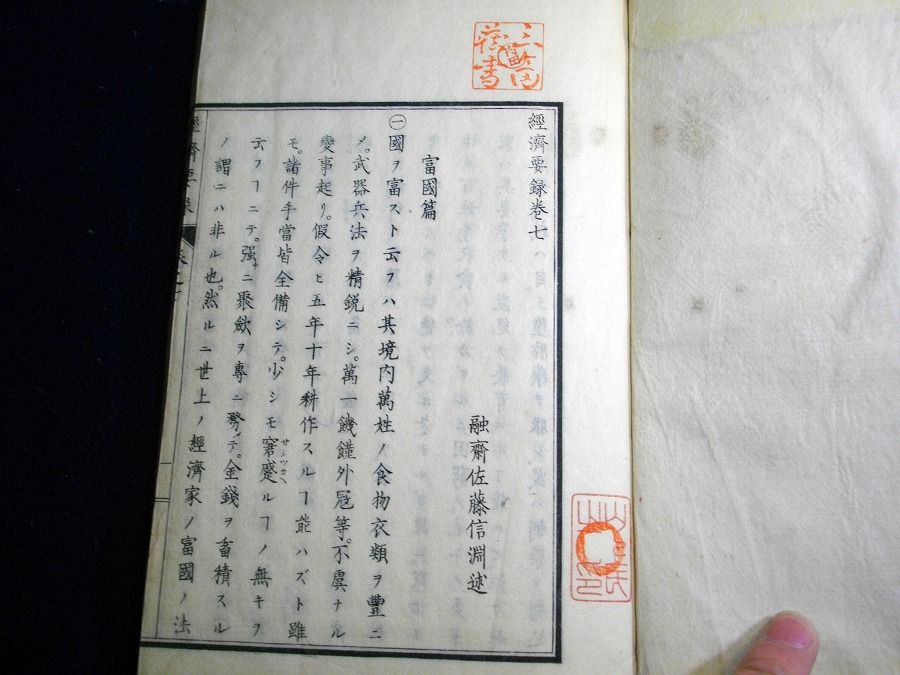 經濟要録卷七
融齋佐藤信淵述
富國篇
㊀國ヲ富スト云フハ其境内萬姓ノ食物衣類ヲ豐ニ
メ。武器兵法ヲ精鋭ニシ。萬一饑饉外冦等。不虞ナル
變事起リ。假令ヒ五年十年耕作スルヿ能ハズト雖
モ。諸件手當皆全備シテ。少シモ窘蹙ルヿノ無キヲ
云フヿニテ。强ニ聚斂ヲ專ニ務テ。金錢ヲ畜積スル
ノ謂ニハ非ル也。然ルニ世上ノ經濟家ノ富國ノ法